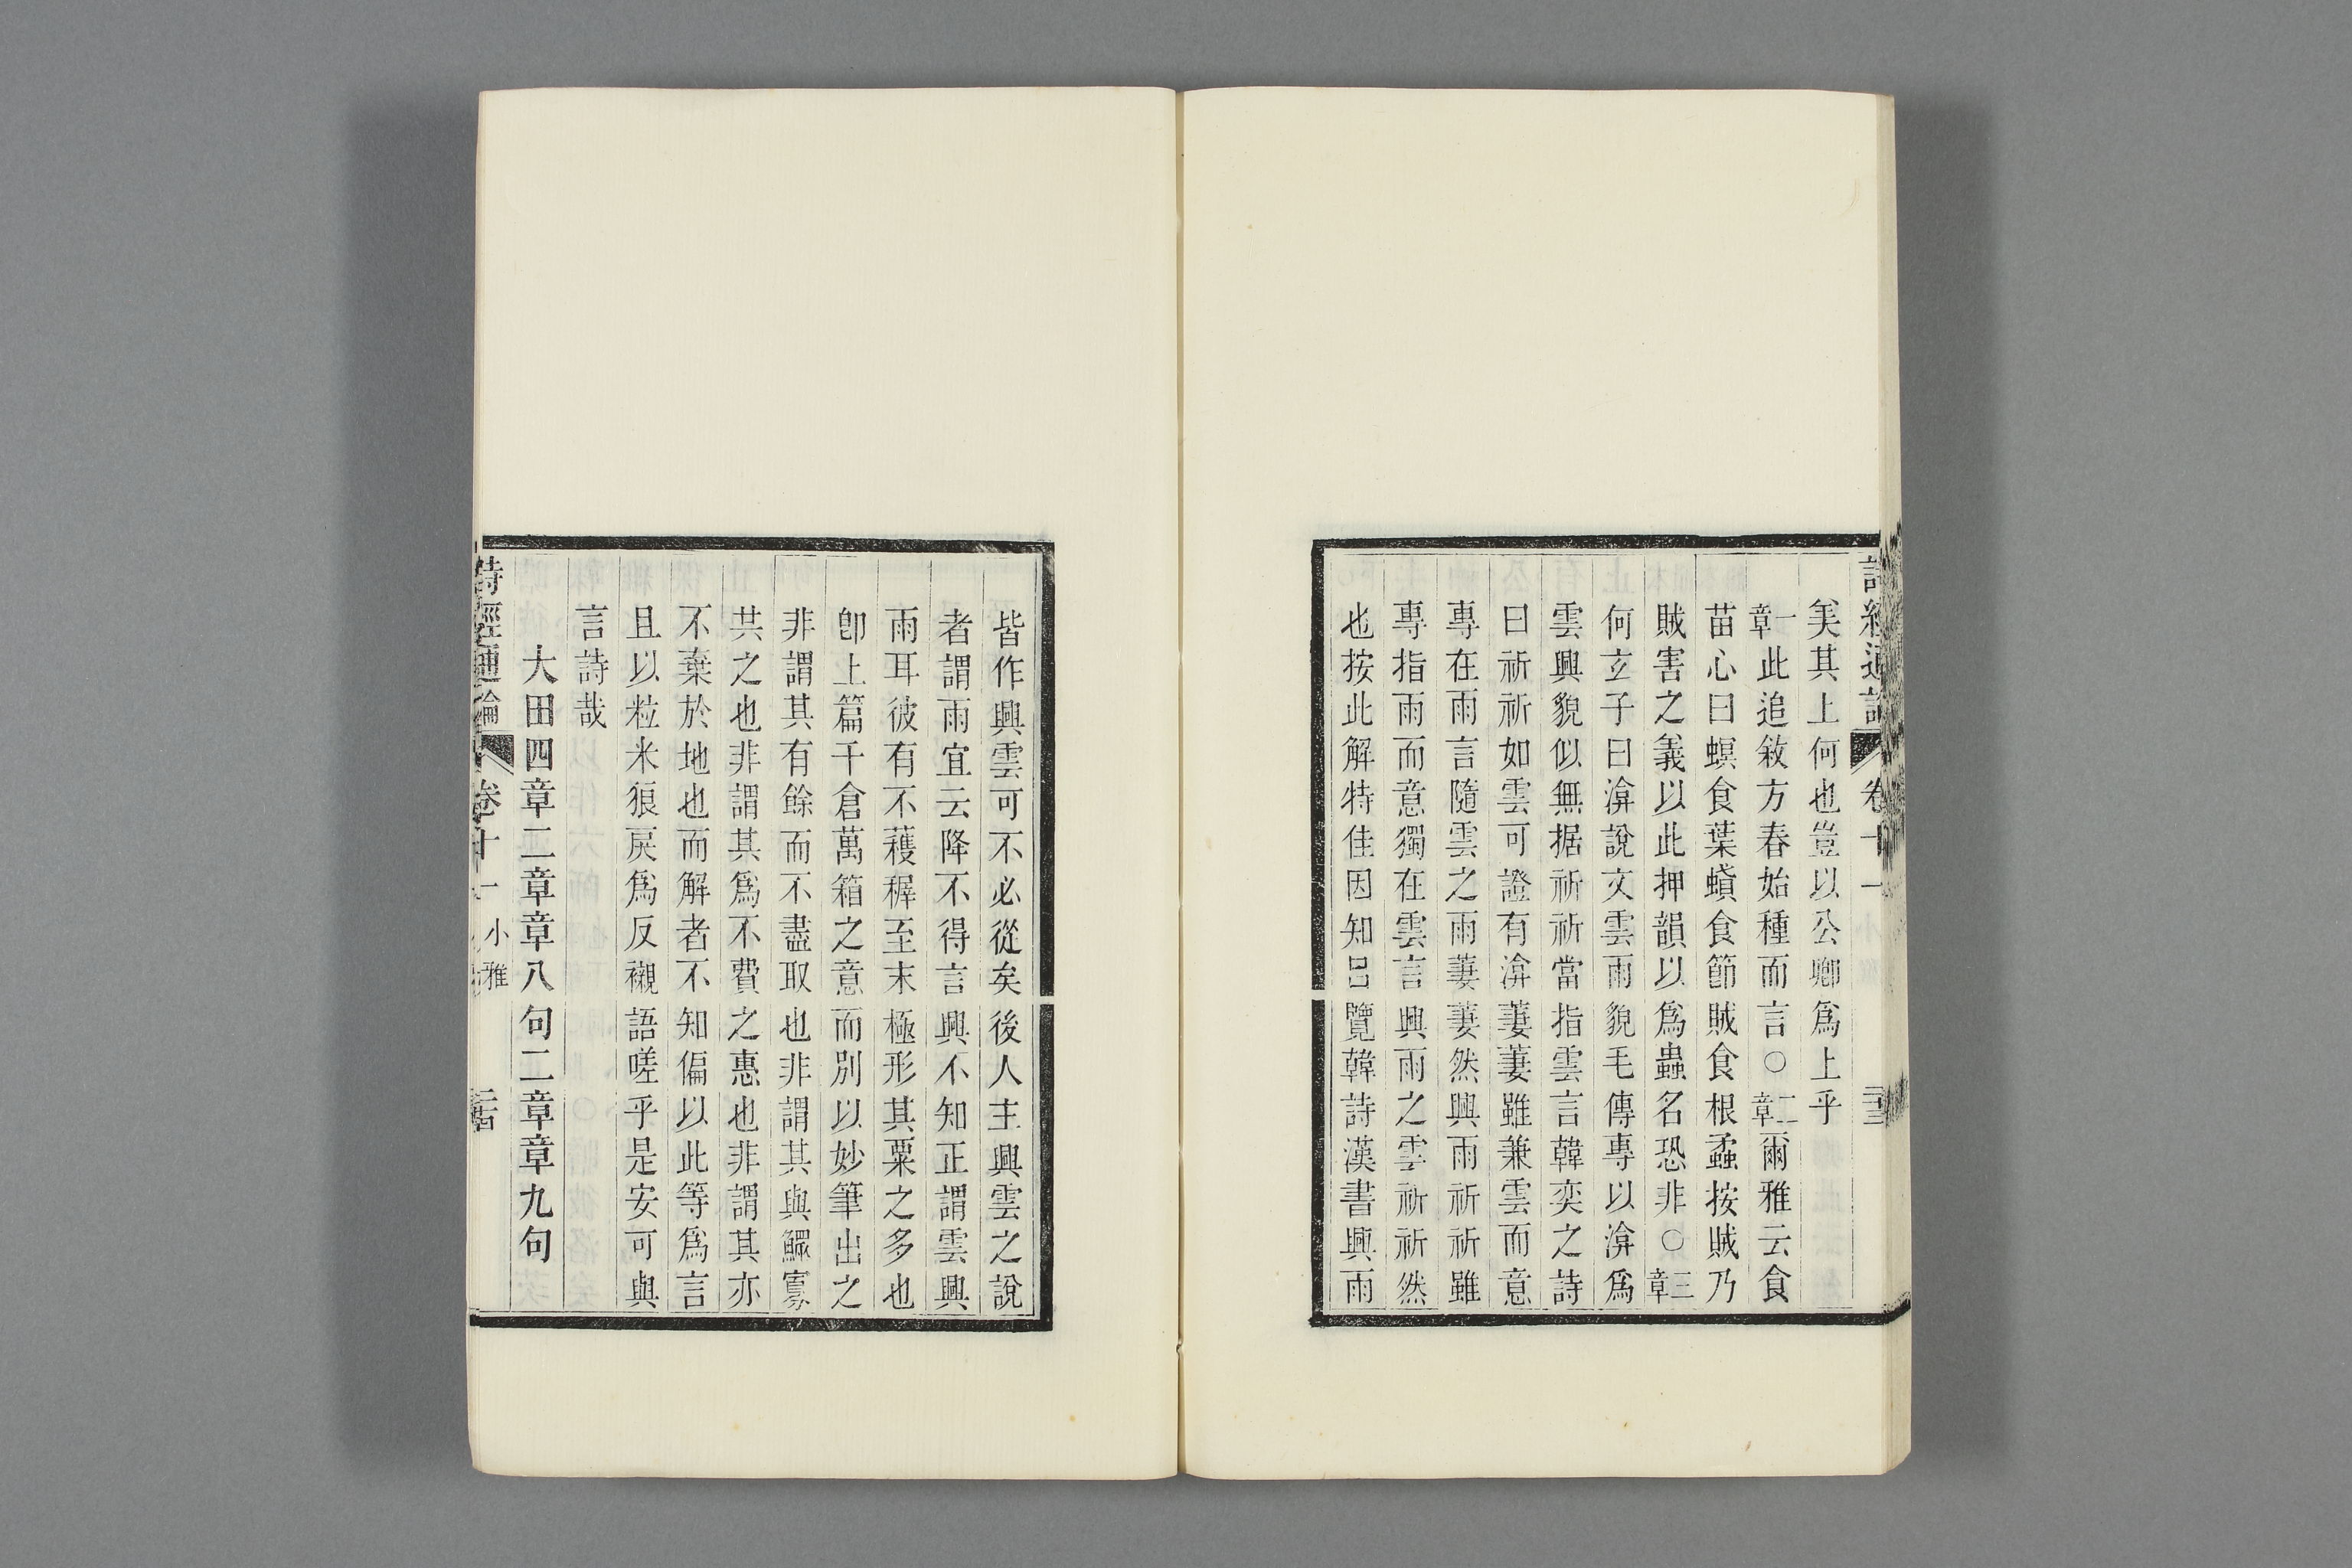 詩經通論 卷十一 二十三
美其上何也豈以公卿爲上乎
一章此追敘方春始種而言○二章爾雅云食
苗心曰螟食葉蟘食節賊食根蟊按賊乃
賊害之義以此押韻以爲蟲名恐非○三章
何玄子曰渰說文雲雨貌毛傳專以渰爲
雲興貌似無据祈祈當指雲言韓奕之詩
曰祈祈如雲可證有渰萋萋雖兼雲而意
專在雨言隨雲之雨萋萋然興雨祈祈雖
專指雨而意獨在雲言興雨之雲祈祈然
也按此解特佳因知呂覽韓詩漢書興雨
皆作興雲可不必從矣後人主興雲之說
者謂雨宜云降不得言興不知正謂雲興
雨耳彼有不穫穉至末極形其粟之多也
卽上篇千倉萬箱之意而別以妙筆出之
非謂其有餘而不盡取也非謂其與鰥寡
共之也非謂其爲不費之惠也非謂其亦
不棄於地也而解者不知偏以此等爲言
且以粒米狼戾爲反襯語嗟乎是安可與
言詩哉
大田四章二章章八句二章章九句
詩經通論 卷十一 小雅